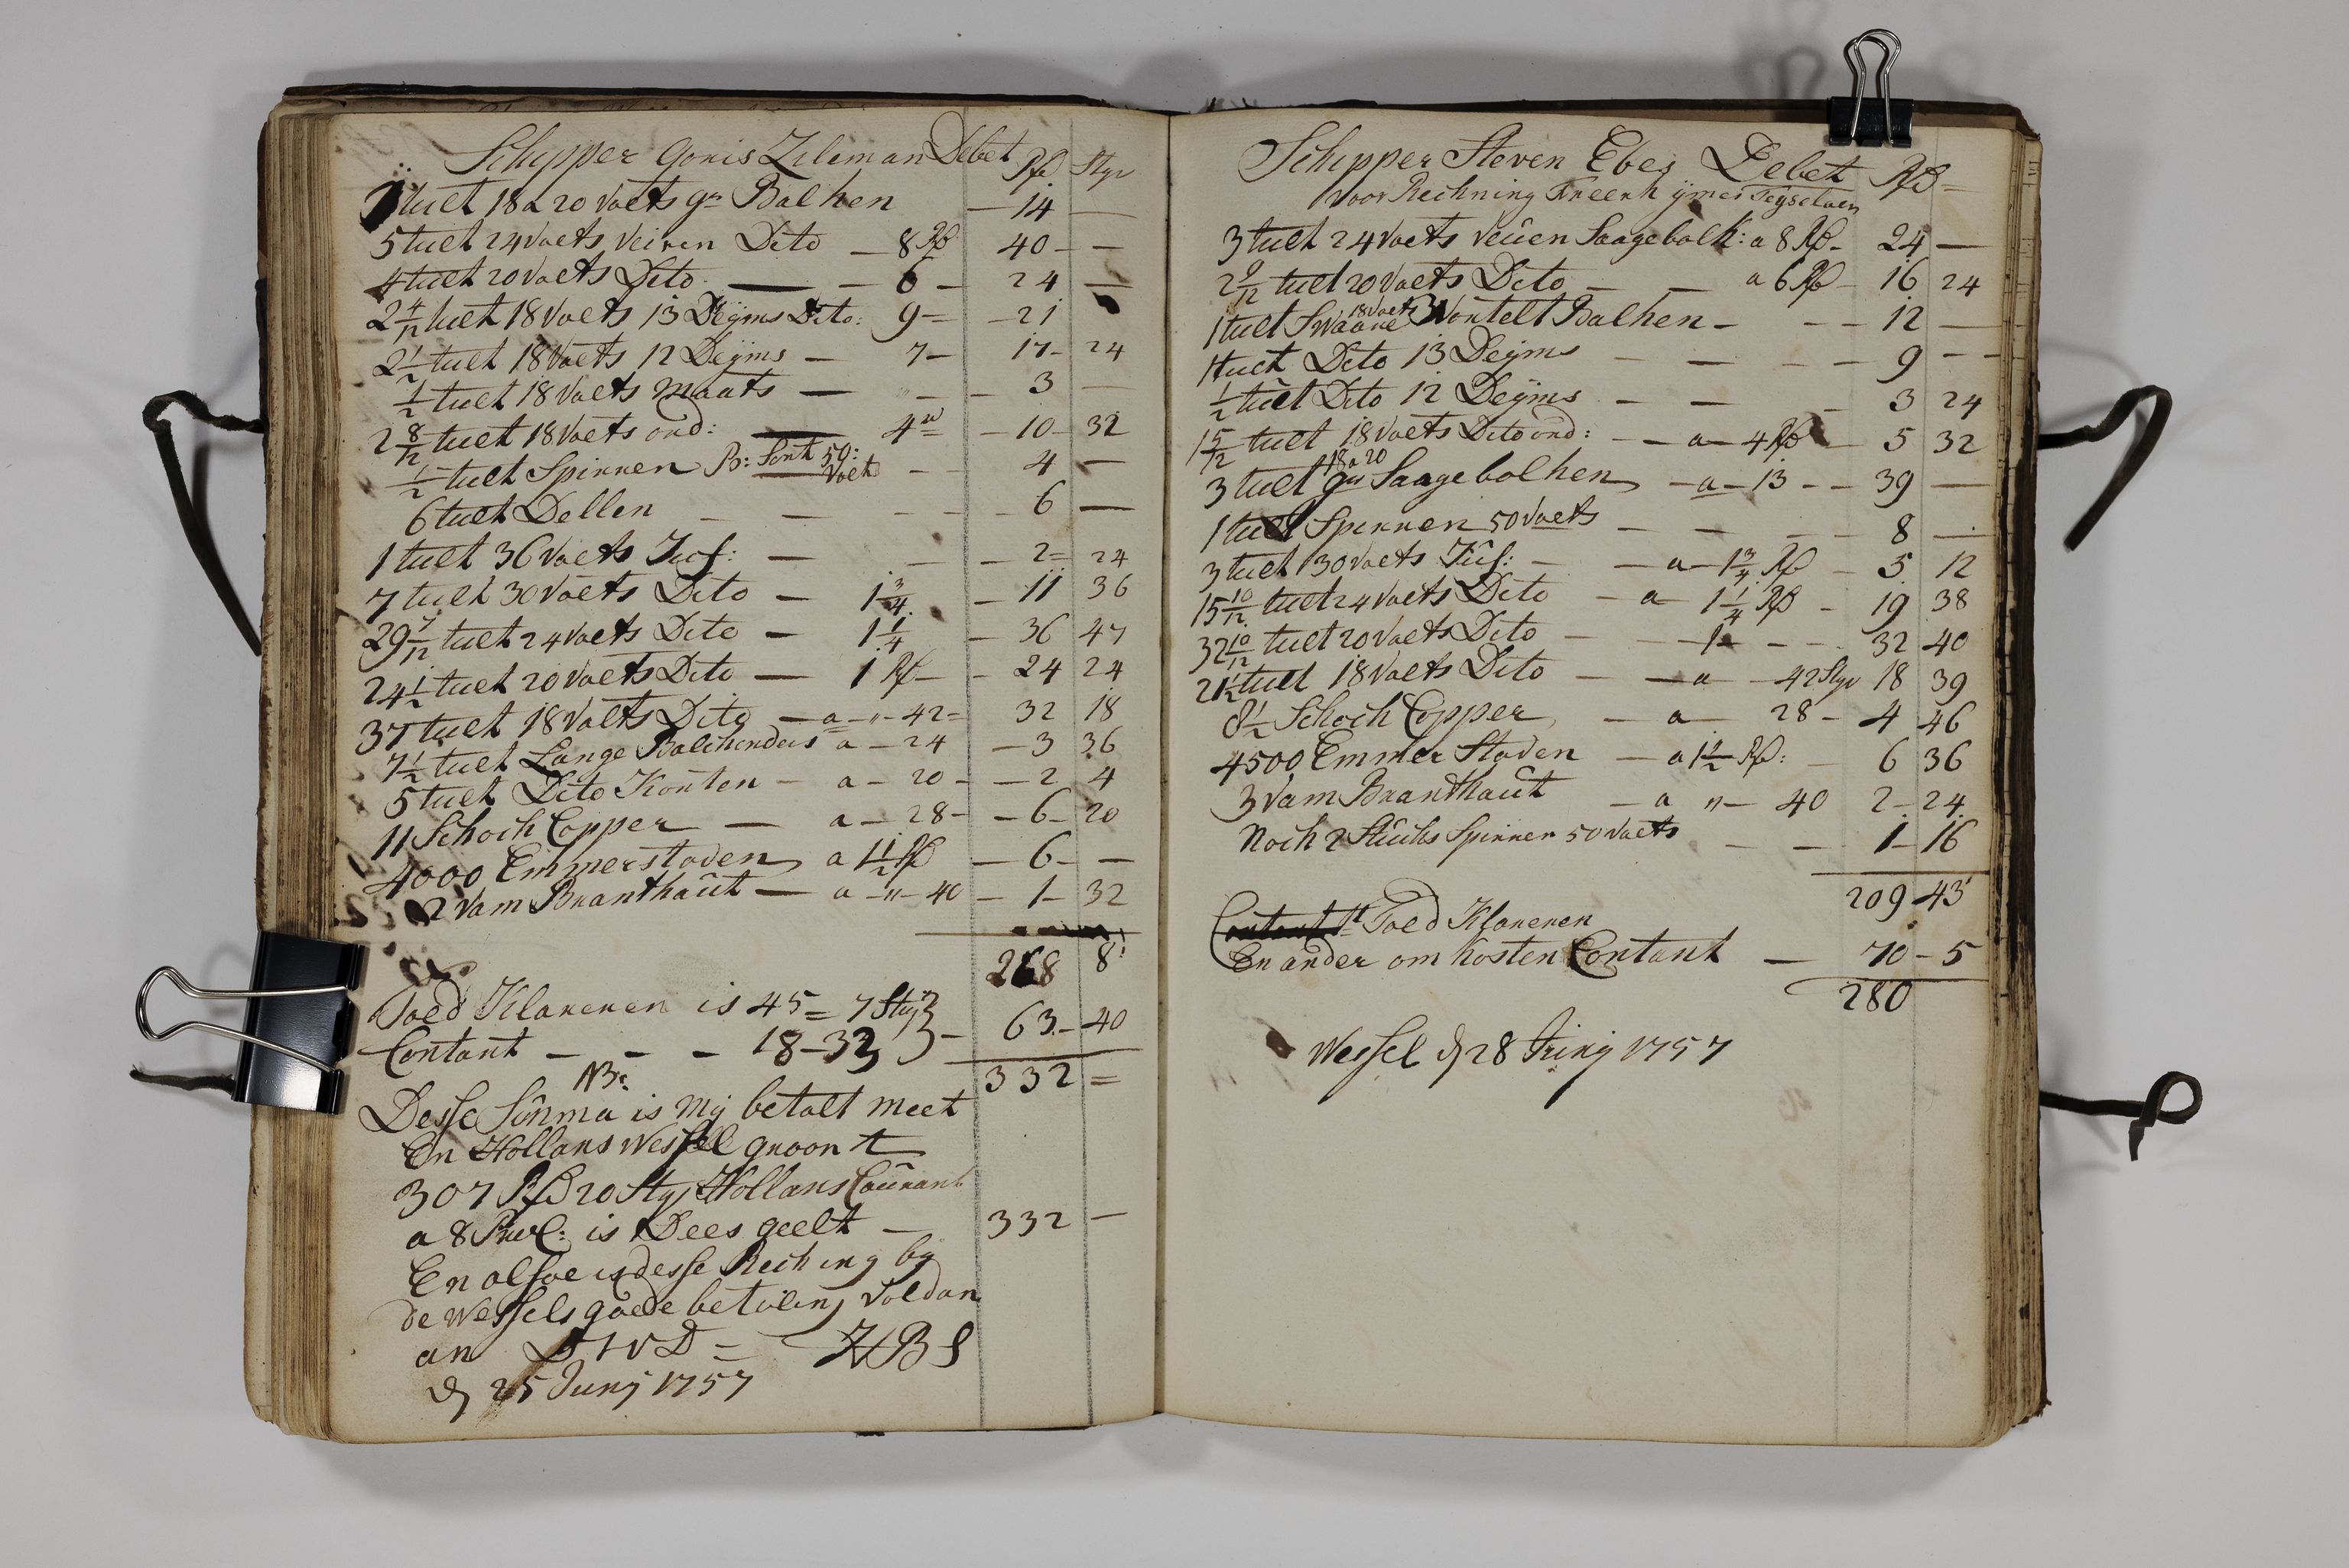 Schipper Gonis Zileman Debet Rß Styr
1 tuelt 18 a 20 Voets gr Balken — 14 —
5 tuelt 24 Voets Veiren Dito — 8 Rß 40 — —
4 tuelt 20 Voets Dito — — 6 — 24 —
2 4/12 tuelt 18 Voets 13 Deijms Dito: 9 = — 21
2 1/2 tuelt 18 Voets 12 Deijms — 7 — 17 — 24
1/2 tuelt 18 Voets maats — — 3 —
2 8/12 tuelt 18 Voets ond: 4 — 10 — 32
1/2 tuelt Spirren 50: Voets — — 4 —
6 tuelt Dellen — — — — 6 —
1 tuelt 36 Voets Juf: — — — 2 = 24
7 tuelt 30 Voets Dito — 1 3/4 — 11 36
29 7/12 tuelt 24 Voets Dito — 1 1/4 — 36 47
24 1/2 tuelt 20 Voets Dito — 1 Rß — 24 24
37 tuelt 18 Voets Dito — a — " — 42 = 32 18
7 1/2 tuelt Lange Balckenders a — 24 — 3 36
5 tuelt Dito Konten — a — 20 — — 2 4
11 Schock Copper — a — 28 — — 6 — 20
4000 Emmerstaden a 1 1/2 Rß — 6 — —
2 Vam Branthaût — a — " — 40 — 1 — 32
268 8
Toed Klareren is 45 = 7 Styr
63 — 40
Contant — — — 18 — 33
332 =
NB:
Desse Sûmma is Mij betalt meet
En Hollans Wessel groont
307 Rß 20 Styr Hollans Coûrant
a 8 Proc: is Dees geelt — 332 —
En alsoe is desse Reching by
de Wessels goede betaling Voldan
an HBS
d 25 Junij 1757
Schipper Steven Ebes Debet Rß =
Voor Rechning
3 tuelt 24 Voets Veûen Saagebalk: a 8 Rß — 24 —
2 9/12 tuelt 20 Voets Dito — — a 6 Rß — 16 24
18 Voets
1 tuelt Swaare Wontelt Balken — — — 12 —
1 tuelt Dito 13 Deijms — — — — 9 — —
1/2 tûelt Dito 12 Deijms — — — 3 24
1 5/12 tuelt 18 Voets Dito ond: — — a — 4 Rß — 5 32
18 a 20
3 tuelt gr Saagebalken — a — 13 — — 39 —
1 tuelt Spirren 50 Voets — — — — 8 —
3 tuelt 30 Voets Jûf: — — a — 1 3/4 Rß — 5 12
15 10/12 tuelt 24 Voets Dito — a — 1 1/4 Rß — 19 38
32 10/12 tuelt 20 Voets Dito — — 1 — — — 32 40
21 1/2 tuelt 18 Voets Dito — — a — 42 Styr 18 39
8 1/2 Schock Copper — a — 28 — 4 46
4500 Emmer Staden — a 1 1/2 Rß: — 6 36
3 Vam Branthaût — a " — 40 2 — 24
Noch 2 Stûcks Spirren 50 Voets — — 1 — 16
209 43
Contant Toed Klareren
En ander om kosten Contant — 70 — 5
280
Wessel d 28 Junij 1757